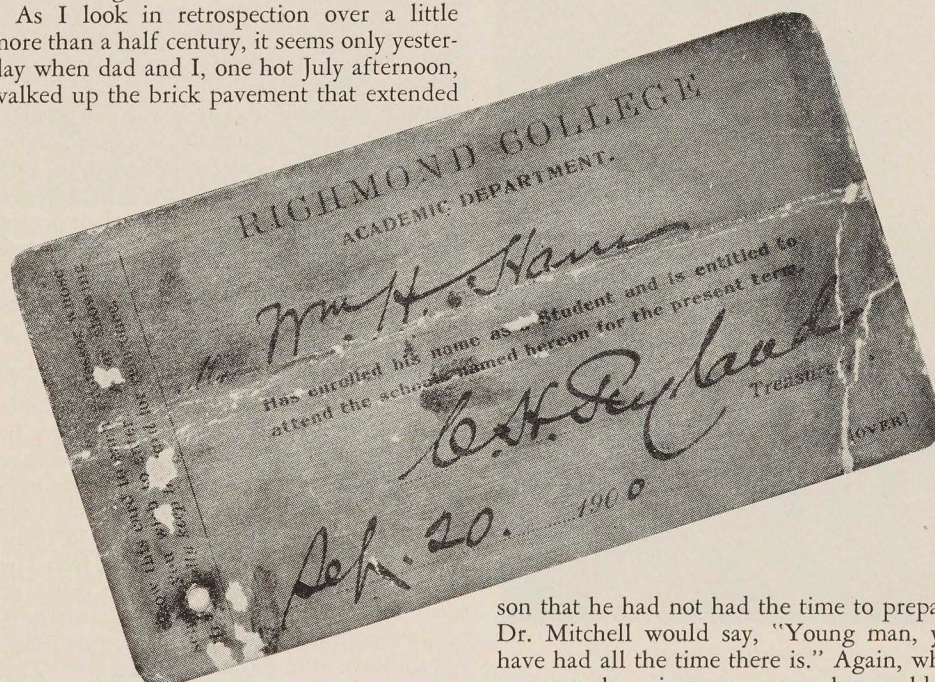 As I look in retrospection over a little
more than a half century, it seems only yester-
day when dad and I, one hot July afternoon,
walked up the brick pavement that extended
RICHMOND COLLEGE
ACADEMIC DEPARTMENT.
Wm. H. Ham
Has enrolled his name as a Student and is entitled to
attend the schools named hereon for the present term.
C. H. Ryland
Treasurer
[OVER]
Sep. 20. 1900
son that he had not had the time to prepa
Dr. Mitchell would say, "Young man, y
have had all the time there is." Again, wh